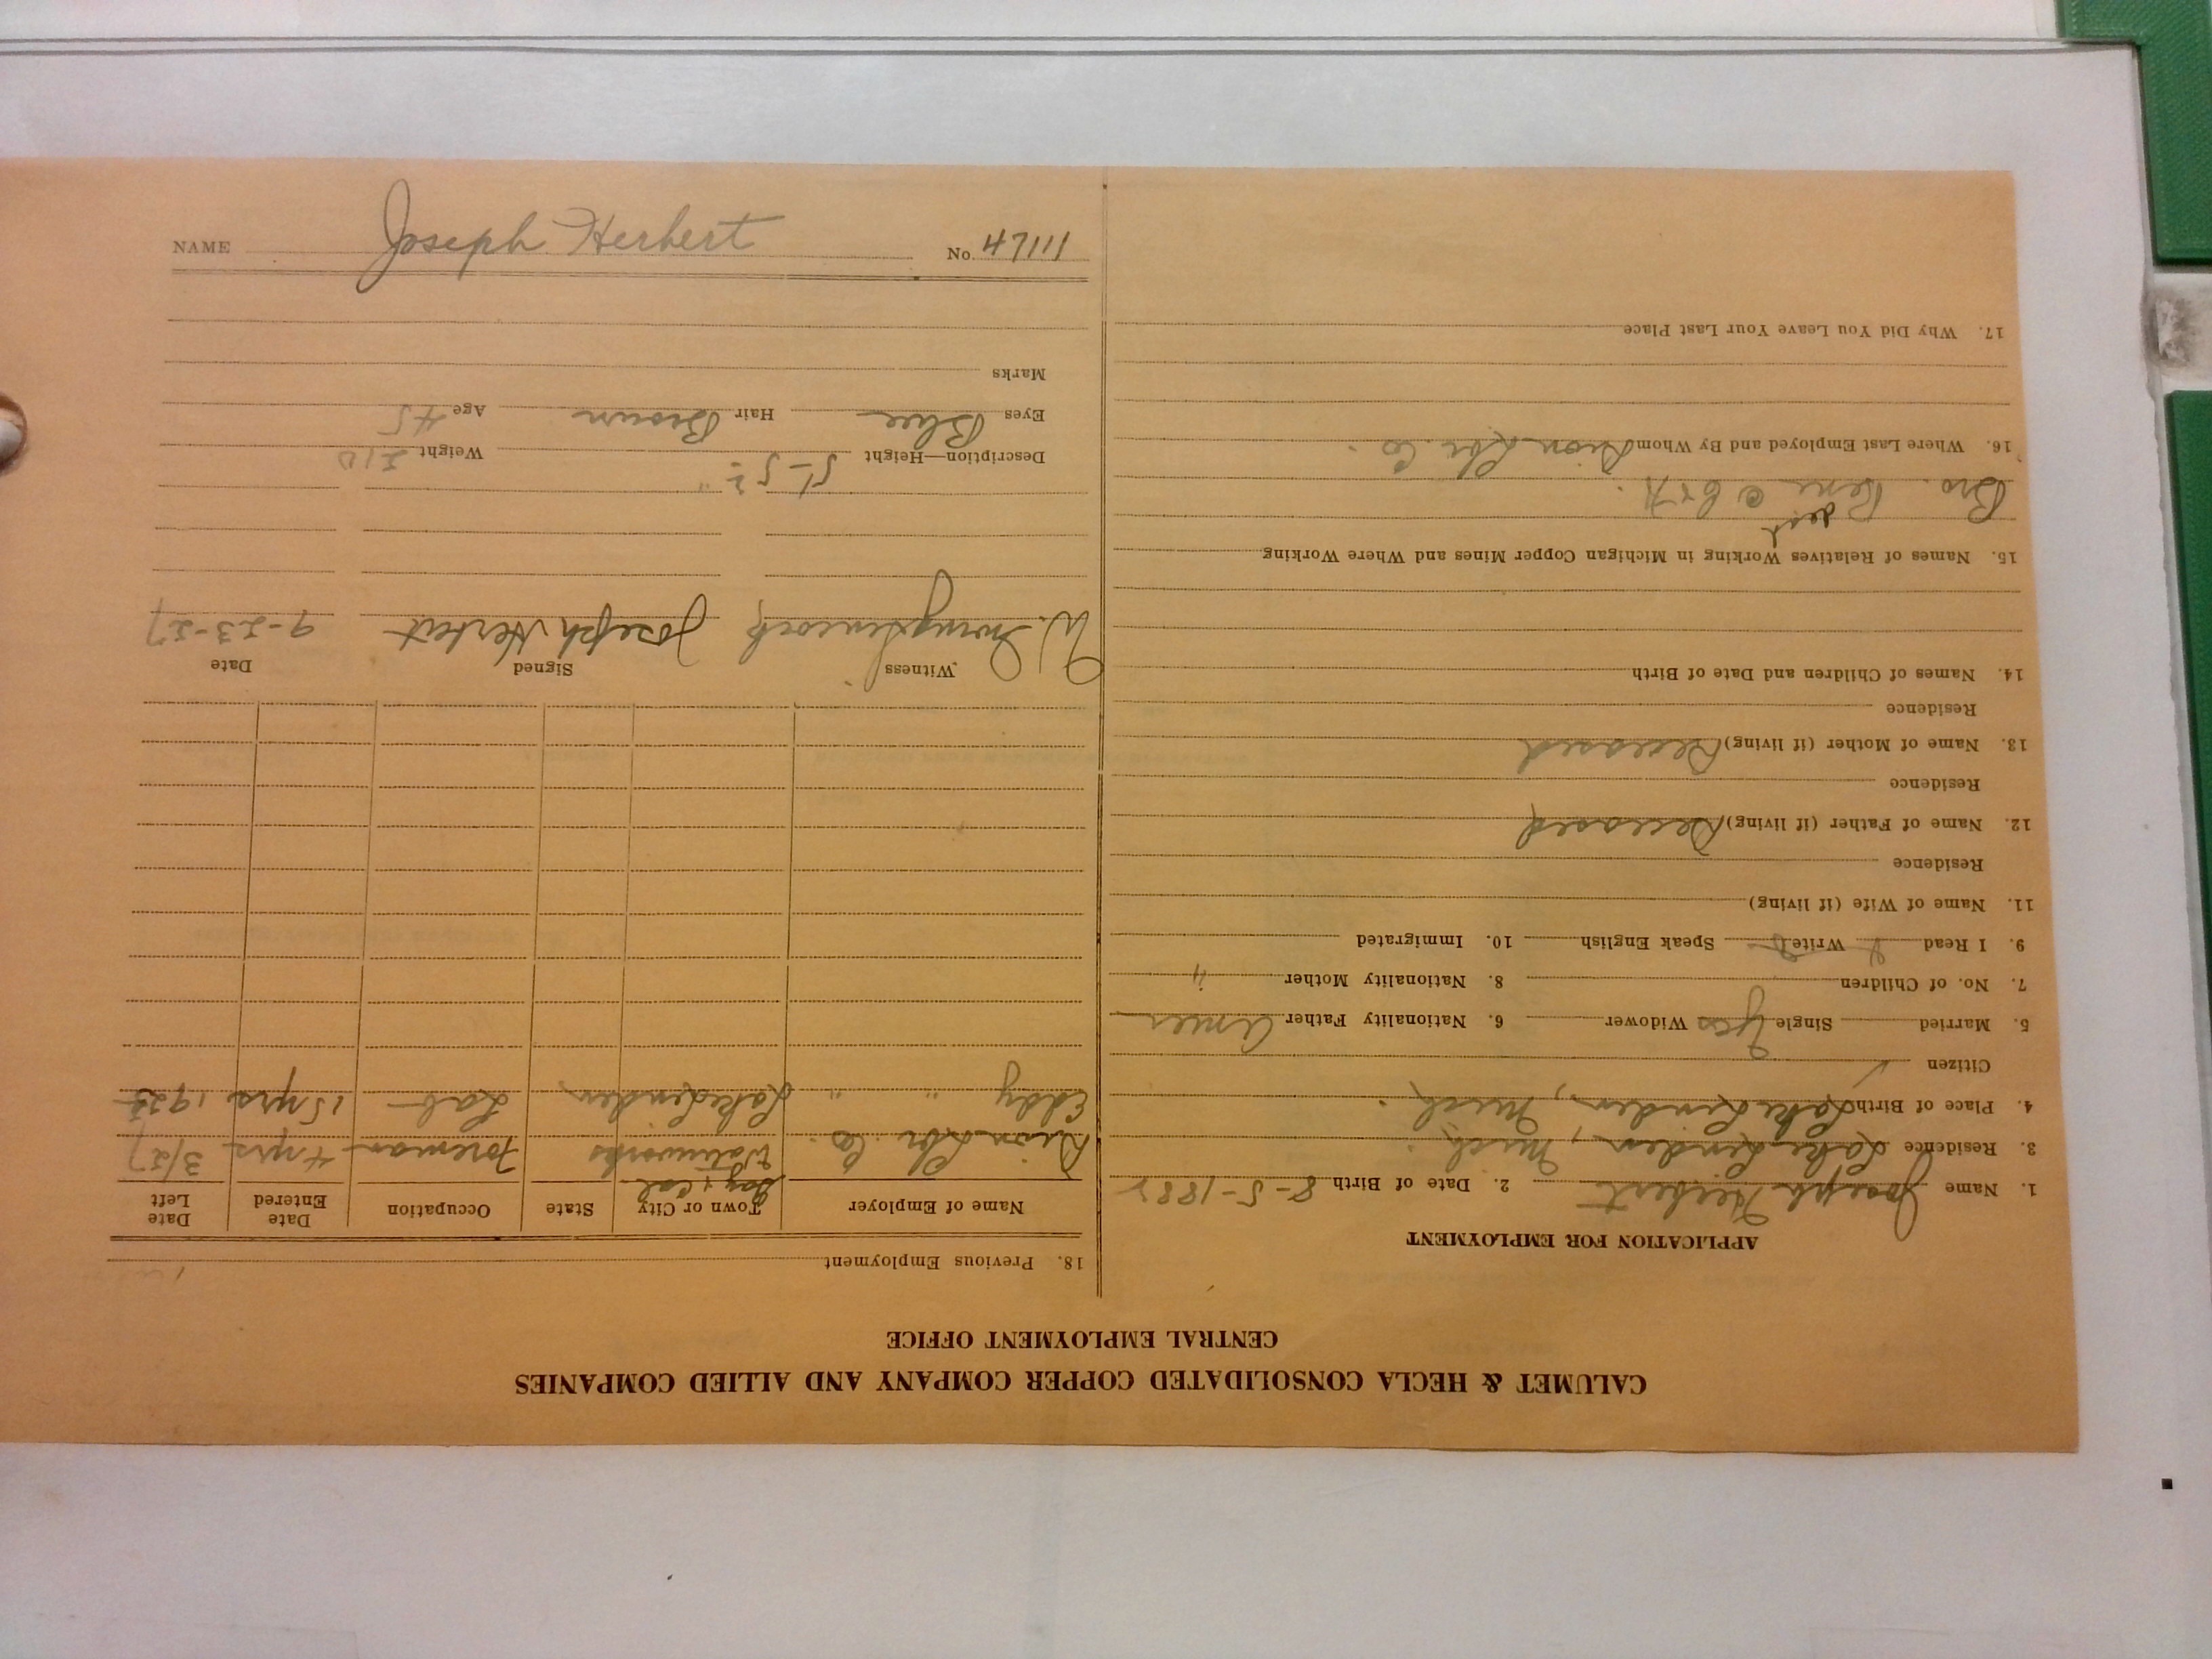 NAME Joseph Herbert No. 47111
CALUMET & HECLA CONSOLIDATED COPPER COMPANY AND ALLIED COMPANIES
CENTRAL EMPLOYMENT OFFICE
APPLICATION FOR EMPLOYMENT
1. Name Joseph Herbert 2. Date of Birth 8-5-1882
3. Residence Lake Linden, Mich.
4. Place of Birth Lake Linden, Mich.
Citizen ✓
5. Married Single Yes Widower 6. Nationality Father Amer
7. No. of Children 8. Nationality Mother "
9. I Read Write Speak English 10. Immigrated
11. Name of Wife (if living)
Residence
12. Name of Father (if living) Deceased
Residence
13. Name of Mother (if living) Deceased
Residence
14. Names of Children and Date of Birth
15. Names of Relatives Working in Michigan Copper Mines and Where Working
Bro. Rene @ C & H.
16. Where Last Employed and By Whom Lbr. Co.
17. Why Did You Leave Your Last Place
18. Previous Employment
Name of Employer Town or City State Occupation Date Entered Date Left
Lbr. Co. Foreman 4 yrs 3/27
Eddy " " Lake Linden Lab 15 yrs. 1923
Witness Signed Date
W. Joseph Herbert 9-23-27
Description—Height 5'-5 1/2" Weight 210
Eyes Blue Hair Brown Age 45
Marks